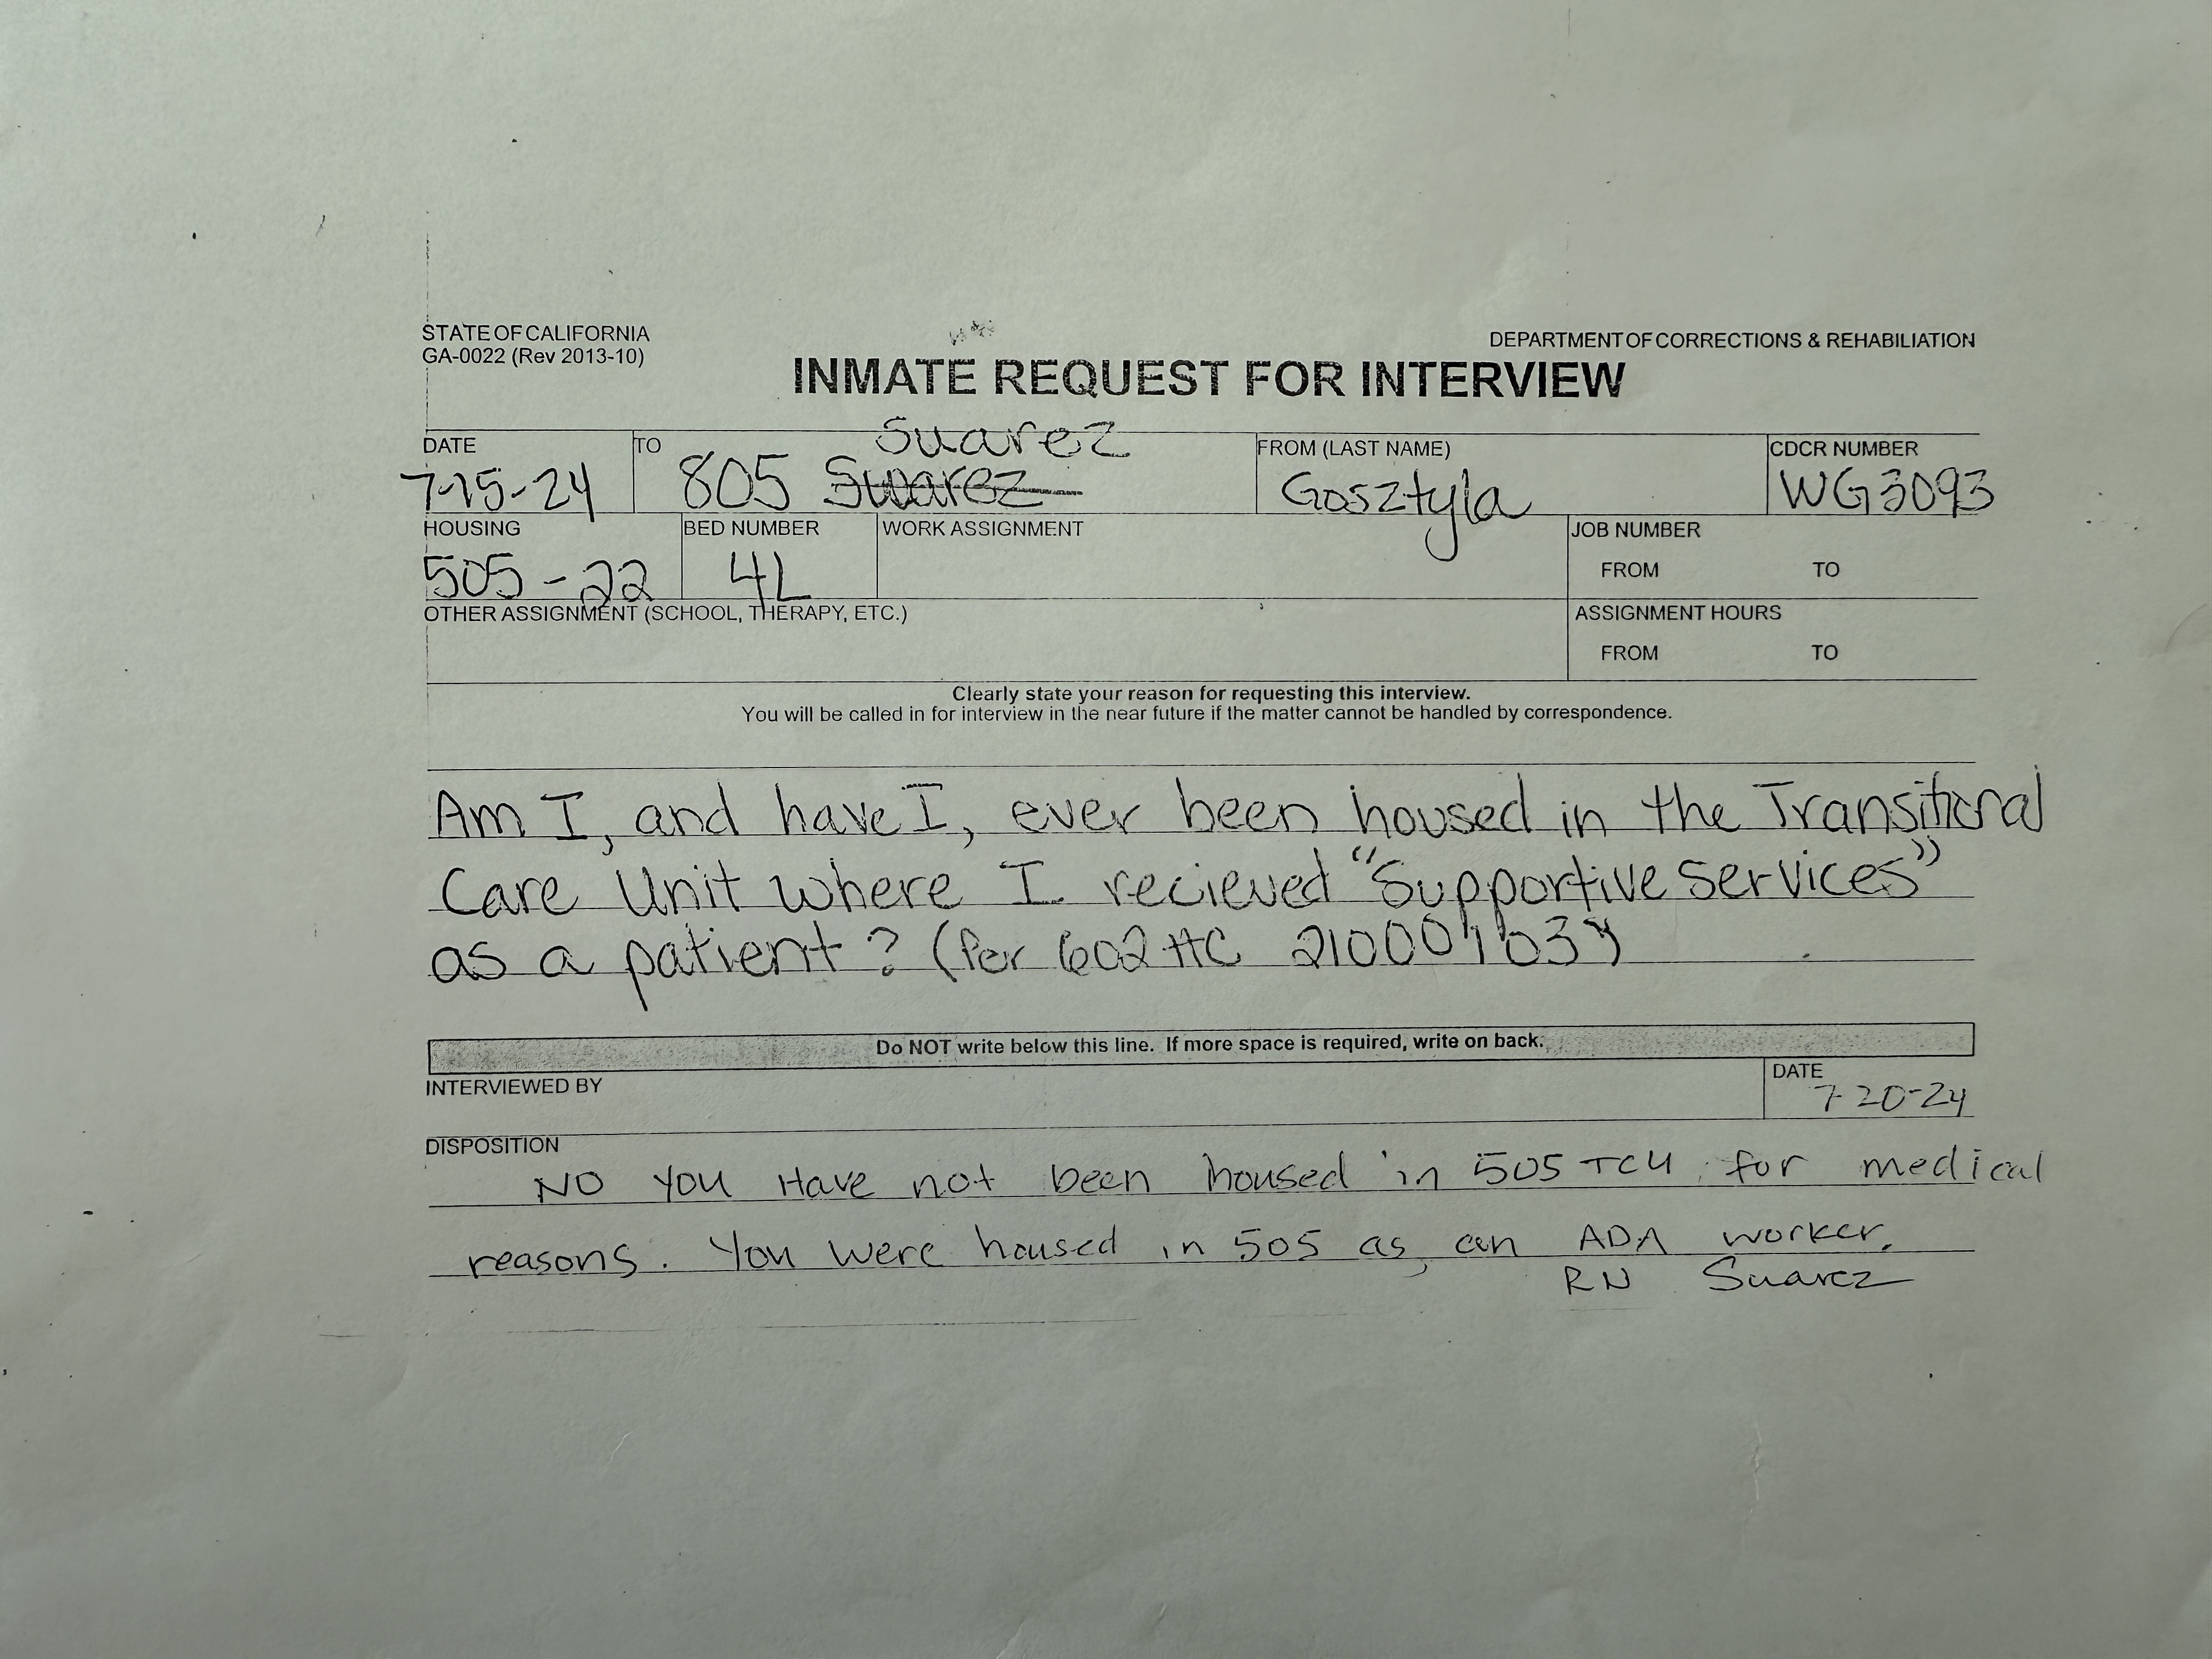 STATE OF CALIFORNIA
DEPARTMENT OF CORRECTIONS & REHABILIATION
GA-0022 (Rev 2013-10)
INMATE REQUEST FOR INTERVIEW
DATE TO FROM (LAST NAME) CDCR NUMBER
Suarez
7-15-24 805 Suarez Gosztyla WG3093
HOUSING BED NUMBER WORK ASSIGNMENT JOB NUMBER
505-22 4L FROM TO
OTHER ASSIGNMENT (SCHOOL, THERAPY, ETC.) ASSIGNMENT HOURS
FROM TO
Clearly state your reason for requesting this interview.
You will be called in for interview in the near future if the matter cannot be handled by correspondence.
Am I, and have I, ever been housed in the Transitional
Care Unit where I recieved "Supportive Services"
as a patient? (Per 602 HC
Do NOT write below this line. If more space is required, write on back.
INTERVIEWED BY DATE
7-20-24
DISPOSITION
NO You Have not been housed in 505 TCU for medical
reasons. You were housed in 505 as an ADA worker.
RN Suarez